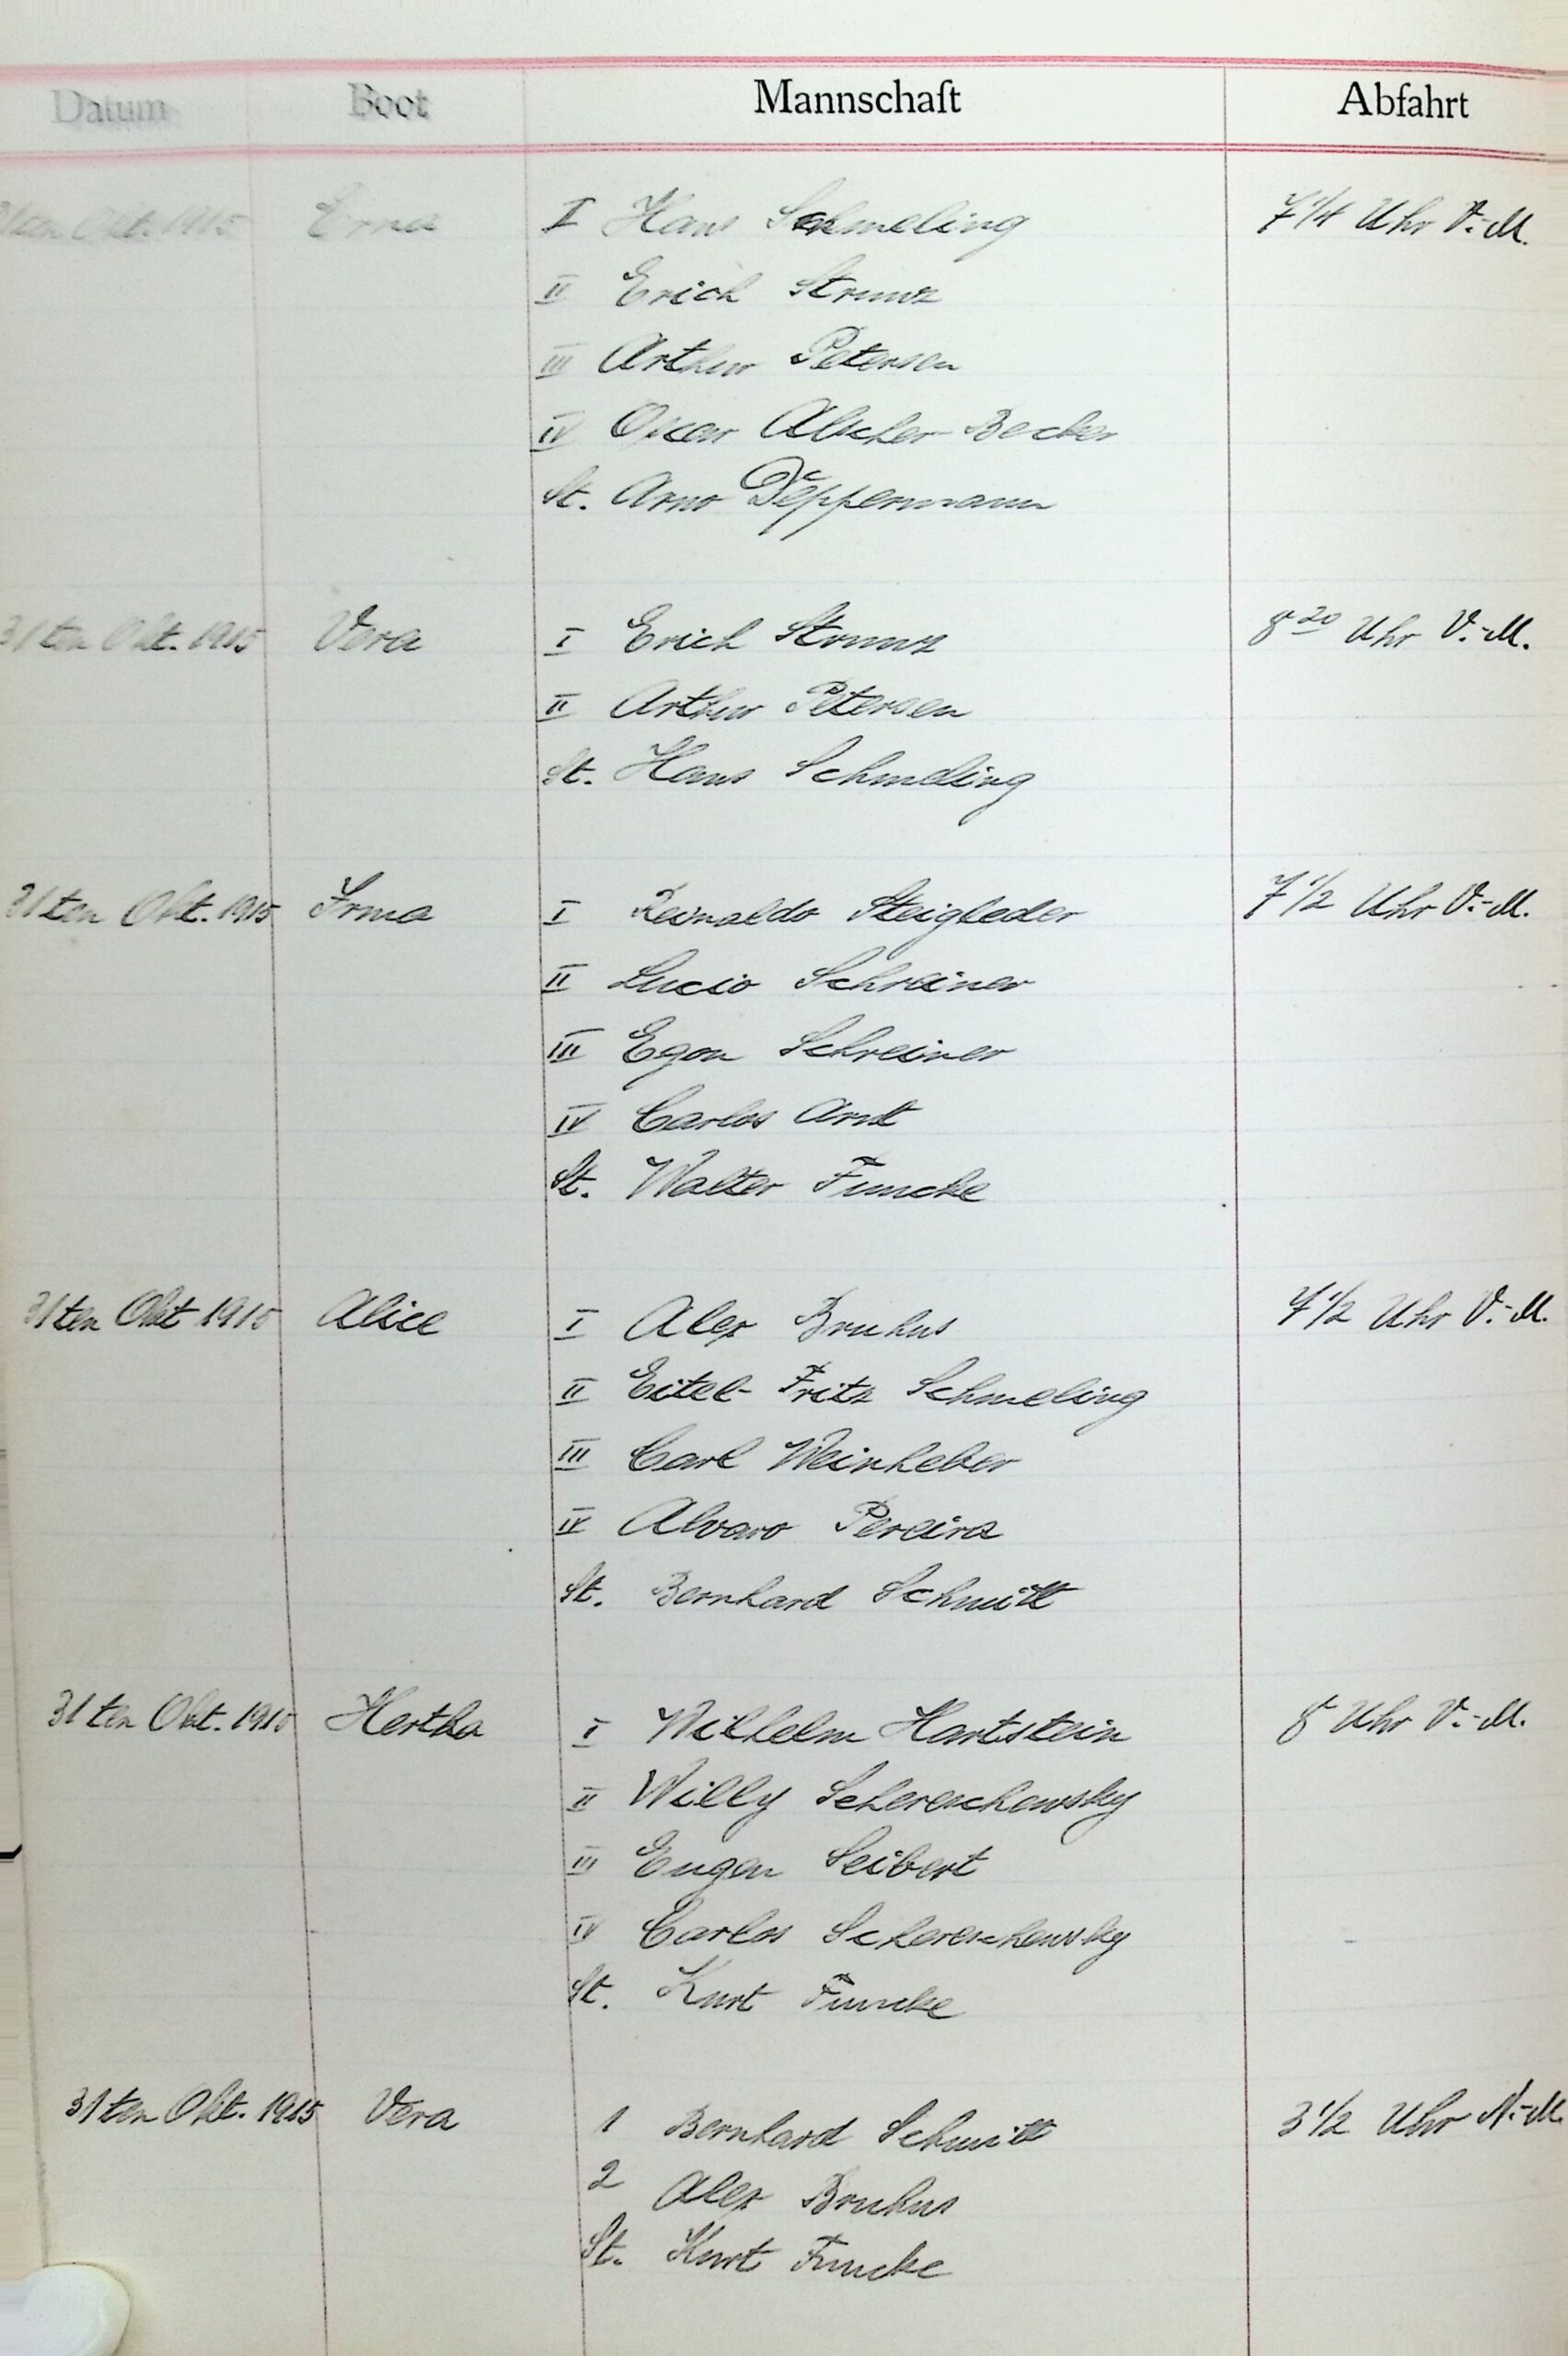 Datum Boot Mannschaft Abfahrt
31ten Okt. 1915 Erna I Hans Schmeling 7 1/4 Uhr V.-M.
II Erich Strunz
III Arthur Petersen
IV Oscar Alscher-Becker
St. Arno Deppermann
31ten Okt. 1915 Vera I Erich Strunz 8 20 Uhr V.-M.
II Arthur Petersen
St. Hans Schmeling
31ten Okt. 1915 Irma I Reinaldo Steigleder 7 1/2 Uhr V.-M.
II Lucio Schreiner
III Egon Schreiner
IV Carlos Arnt
St. Walter Funcke
31ten Okt 1915 Alice I Alex Bruhns 7 1/2 Uhr V.-M.
II Eitel-Fritz Schmeling
III Carl Weinheber
IV Alvaro Pereira
St. Bernhard Schmitt
31ten Okt. 1915 Hertha I Wilhelm Hartstein 8 Uhr V.-M.
II Willy Schereschewsky
III Eugen Seibert
IV Carlos Schereschewsky
St. Kurt Funcke
31ten Okt. 1915 Vera 1 Bernhard Schmitt 3 1/2 Uhr N.-M.
2 Alex Bruhns
St. Kurt Funcke